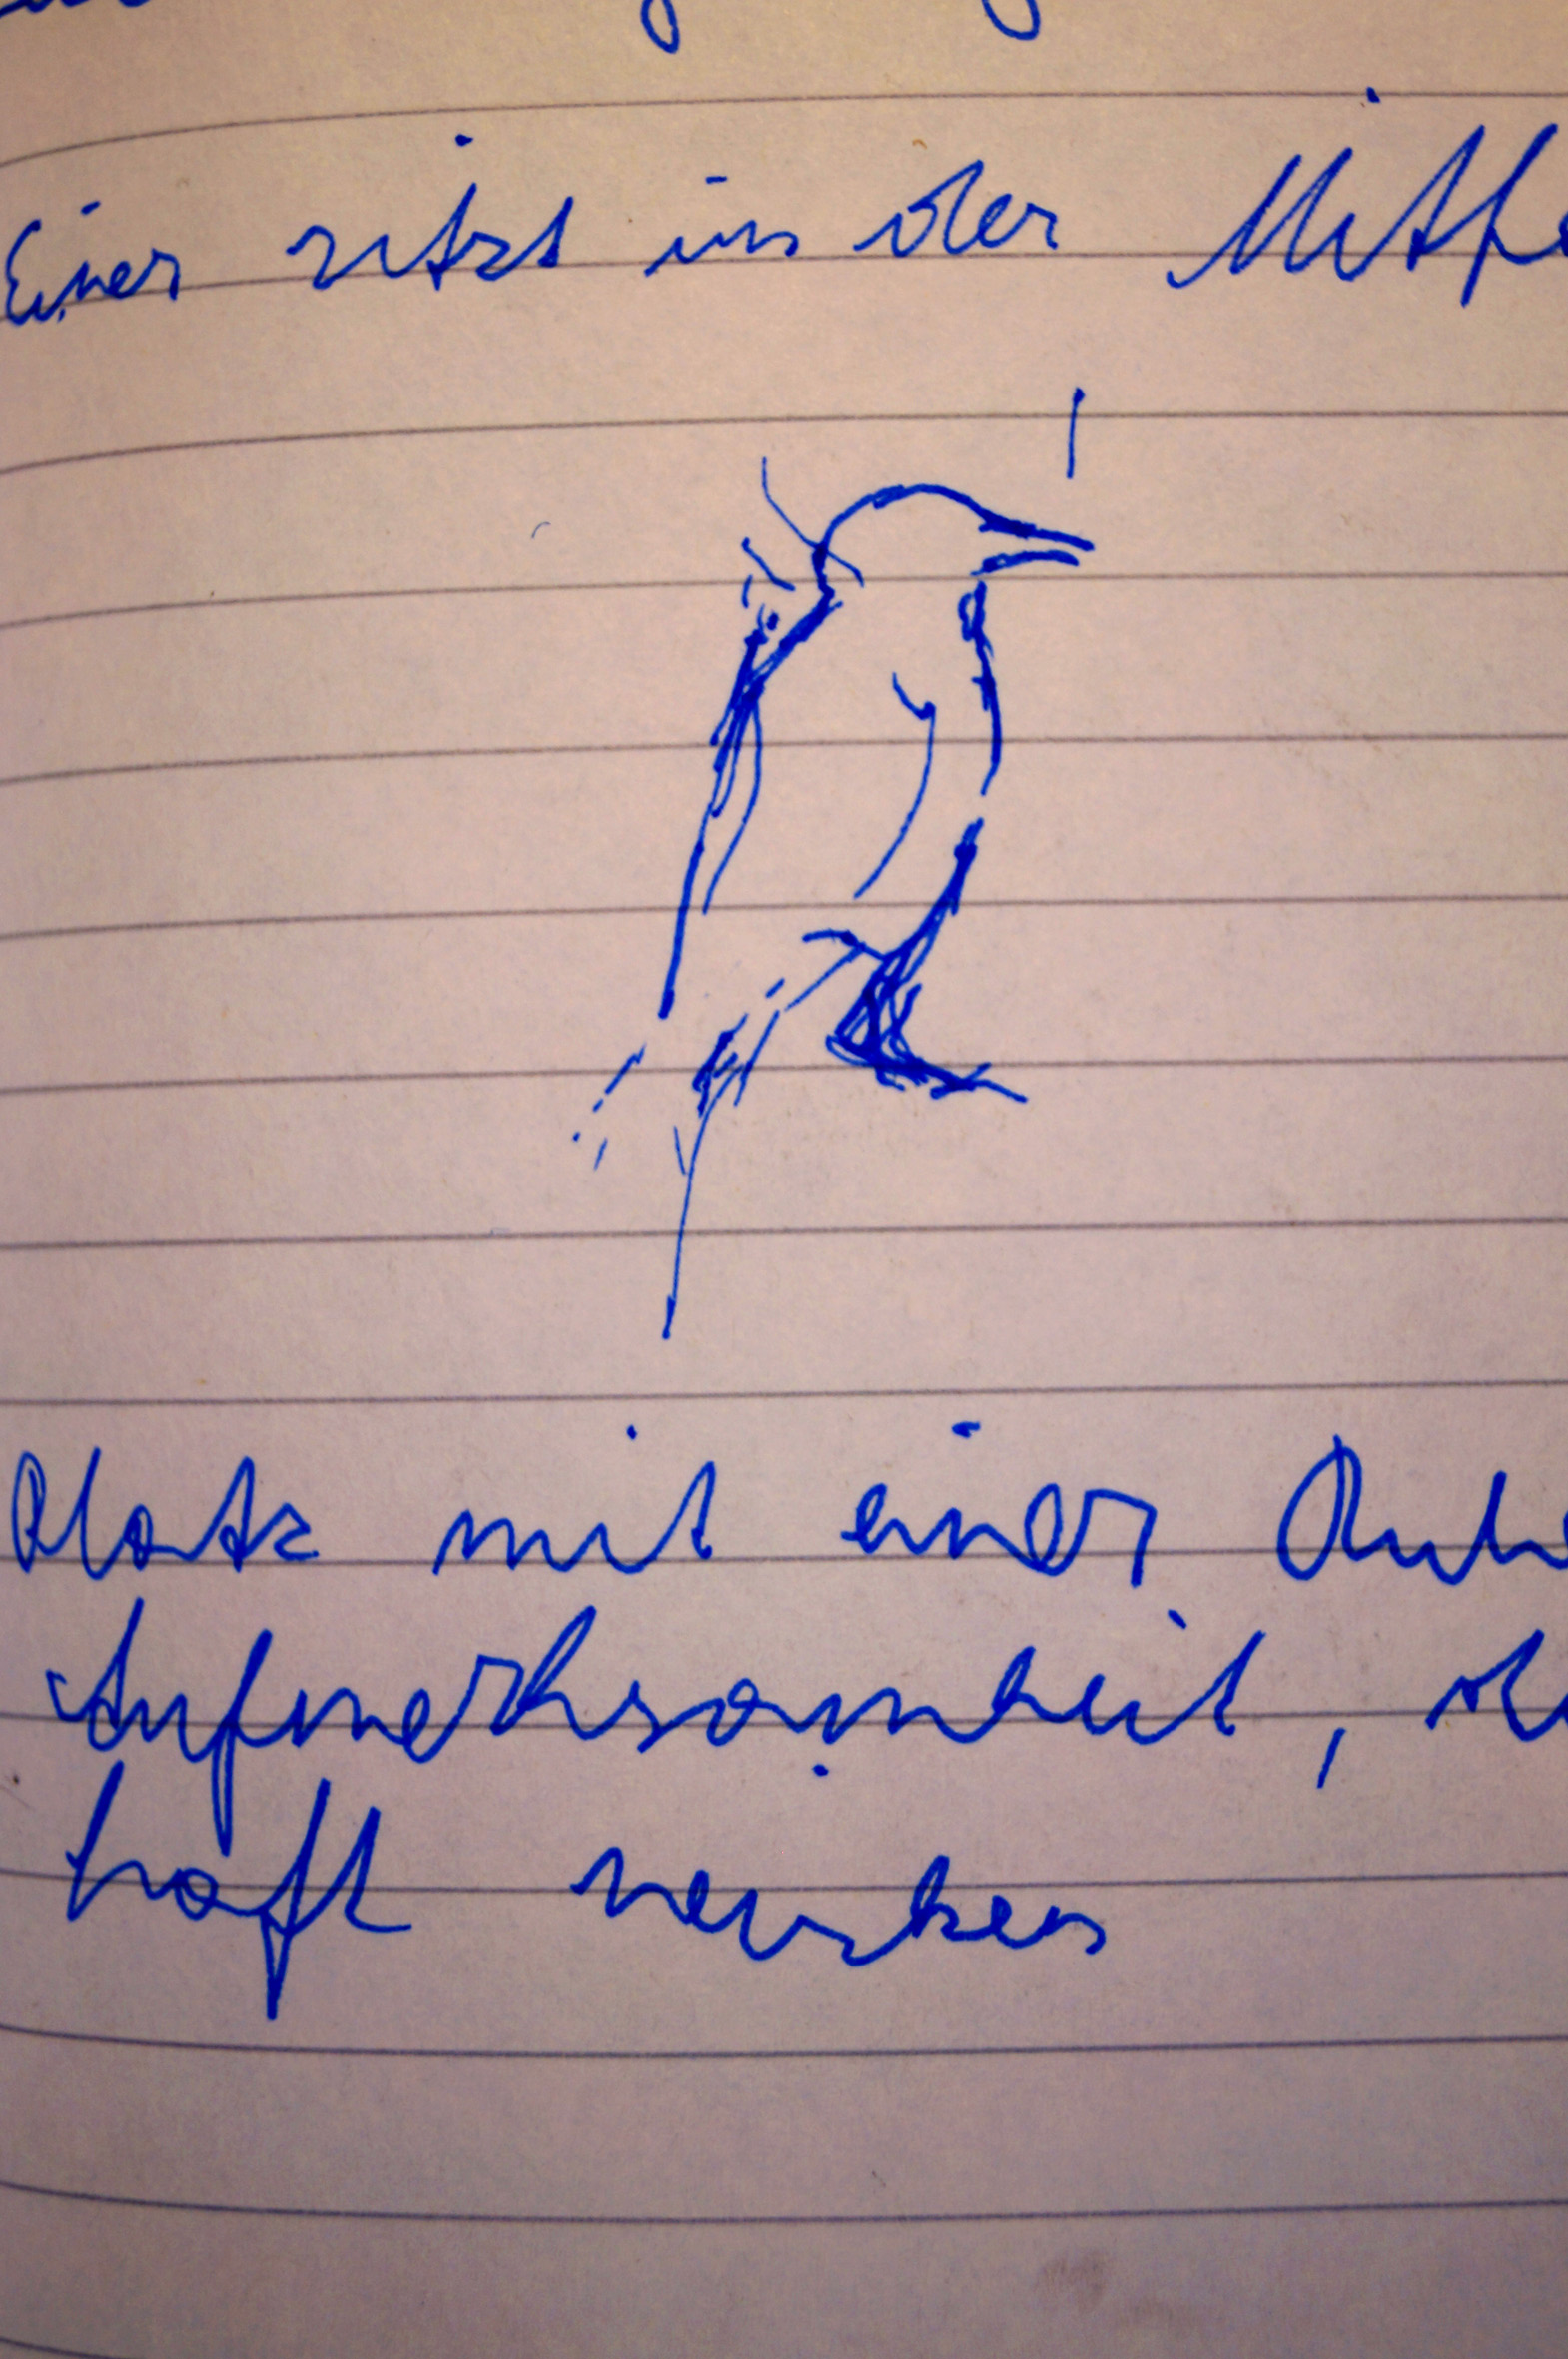 Einer sitzt in der Mitte
Platz mit einer Ruhe
Aufmerksamkeit, d
haft